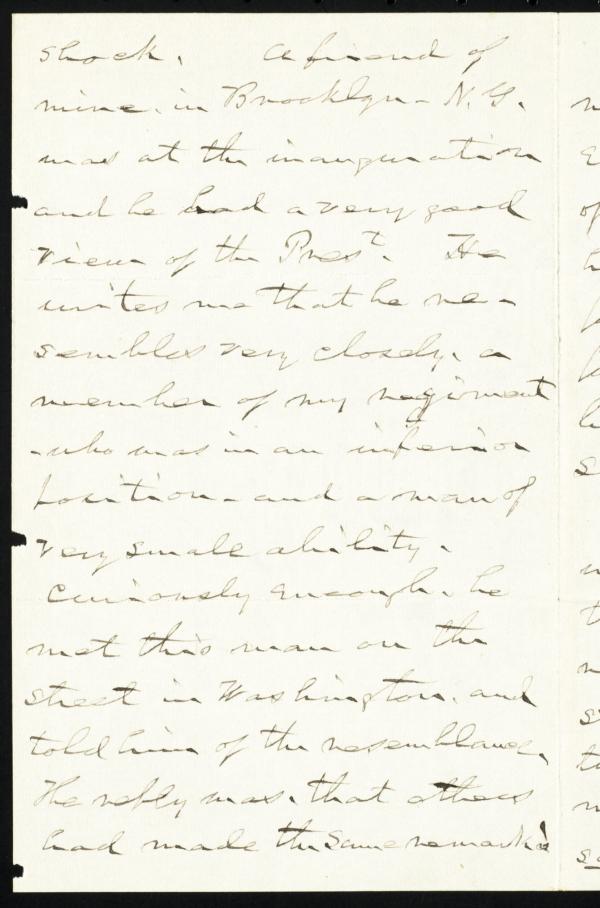 shock. A friend of
mine, in Brooklyn - N.Y.
was at the inauguration
and he had a very good
view of the Prest. He
writes me that he re-
sembles very closely, a
member of my regiment
- who was in an inferior
position - and a man of
very small ability.
Curiously enough, he
met this man on the
street in Washington, and
told him of the resemblance.
The reply was, that others
had made the same remark.